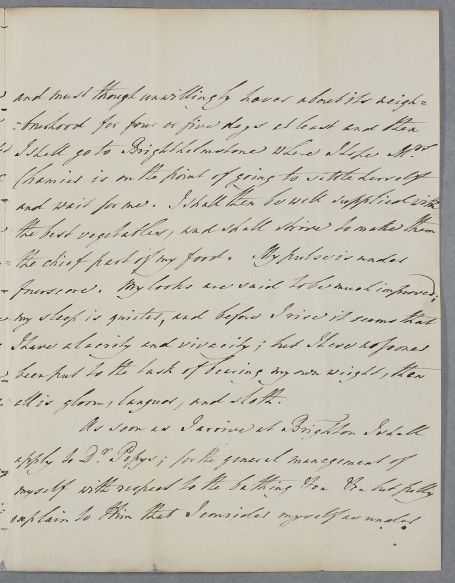 and must though unwillingly hover about its neigh=
=bourhood for four or five days at least and then
I shall go to Brighthelmstone where I hope Mrs.
Chamier is on the point of going to settle herself
and wait for me. I shall then be well supplied with
the best vegetables, and shall strive to make them
the chief part of my food. My pulse is under
fourscore. My looks are said to be much improved;
my sleep is quieter, and before I rise it seems that
I have alacrity and vivacity; but I have no sooner
been put to the task of bearing my own weight, then
all is gloom, languor, and sloth.
As soon as I arrive at Brighton I shall
apply to Dr. Pepys; for the general management of
myself with respect to the bathing &ca &ca but fully
explain to Him that I consider myself as under